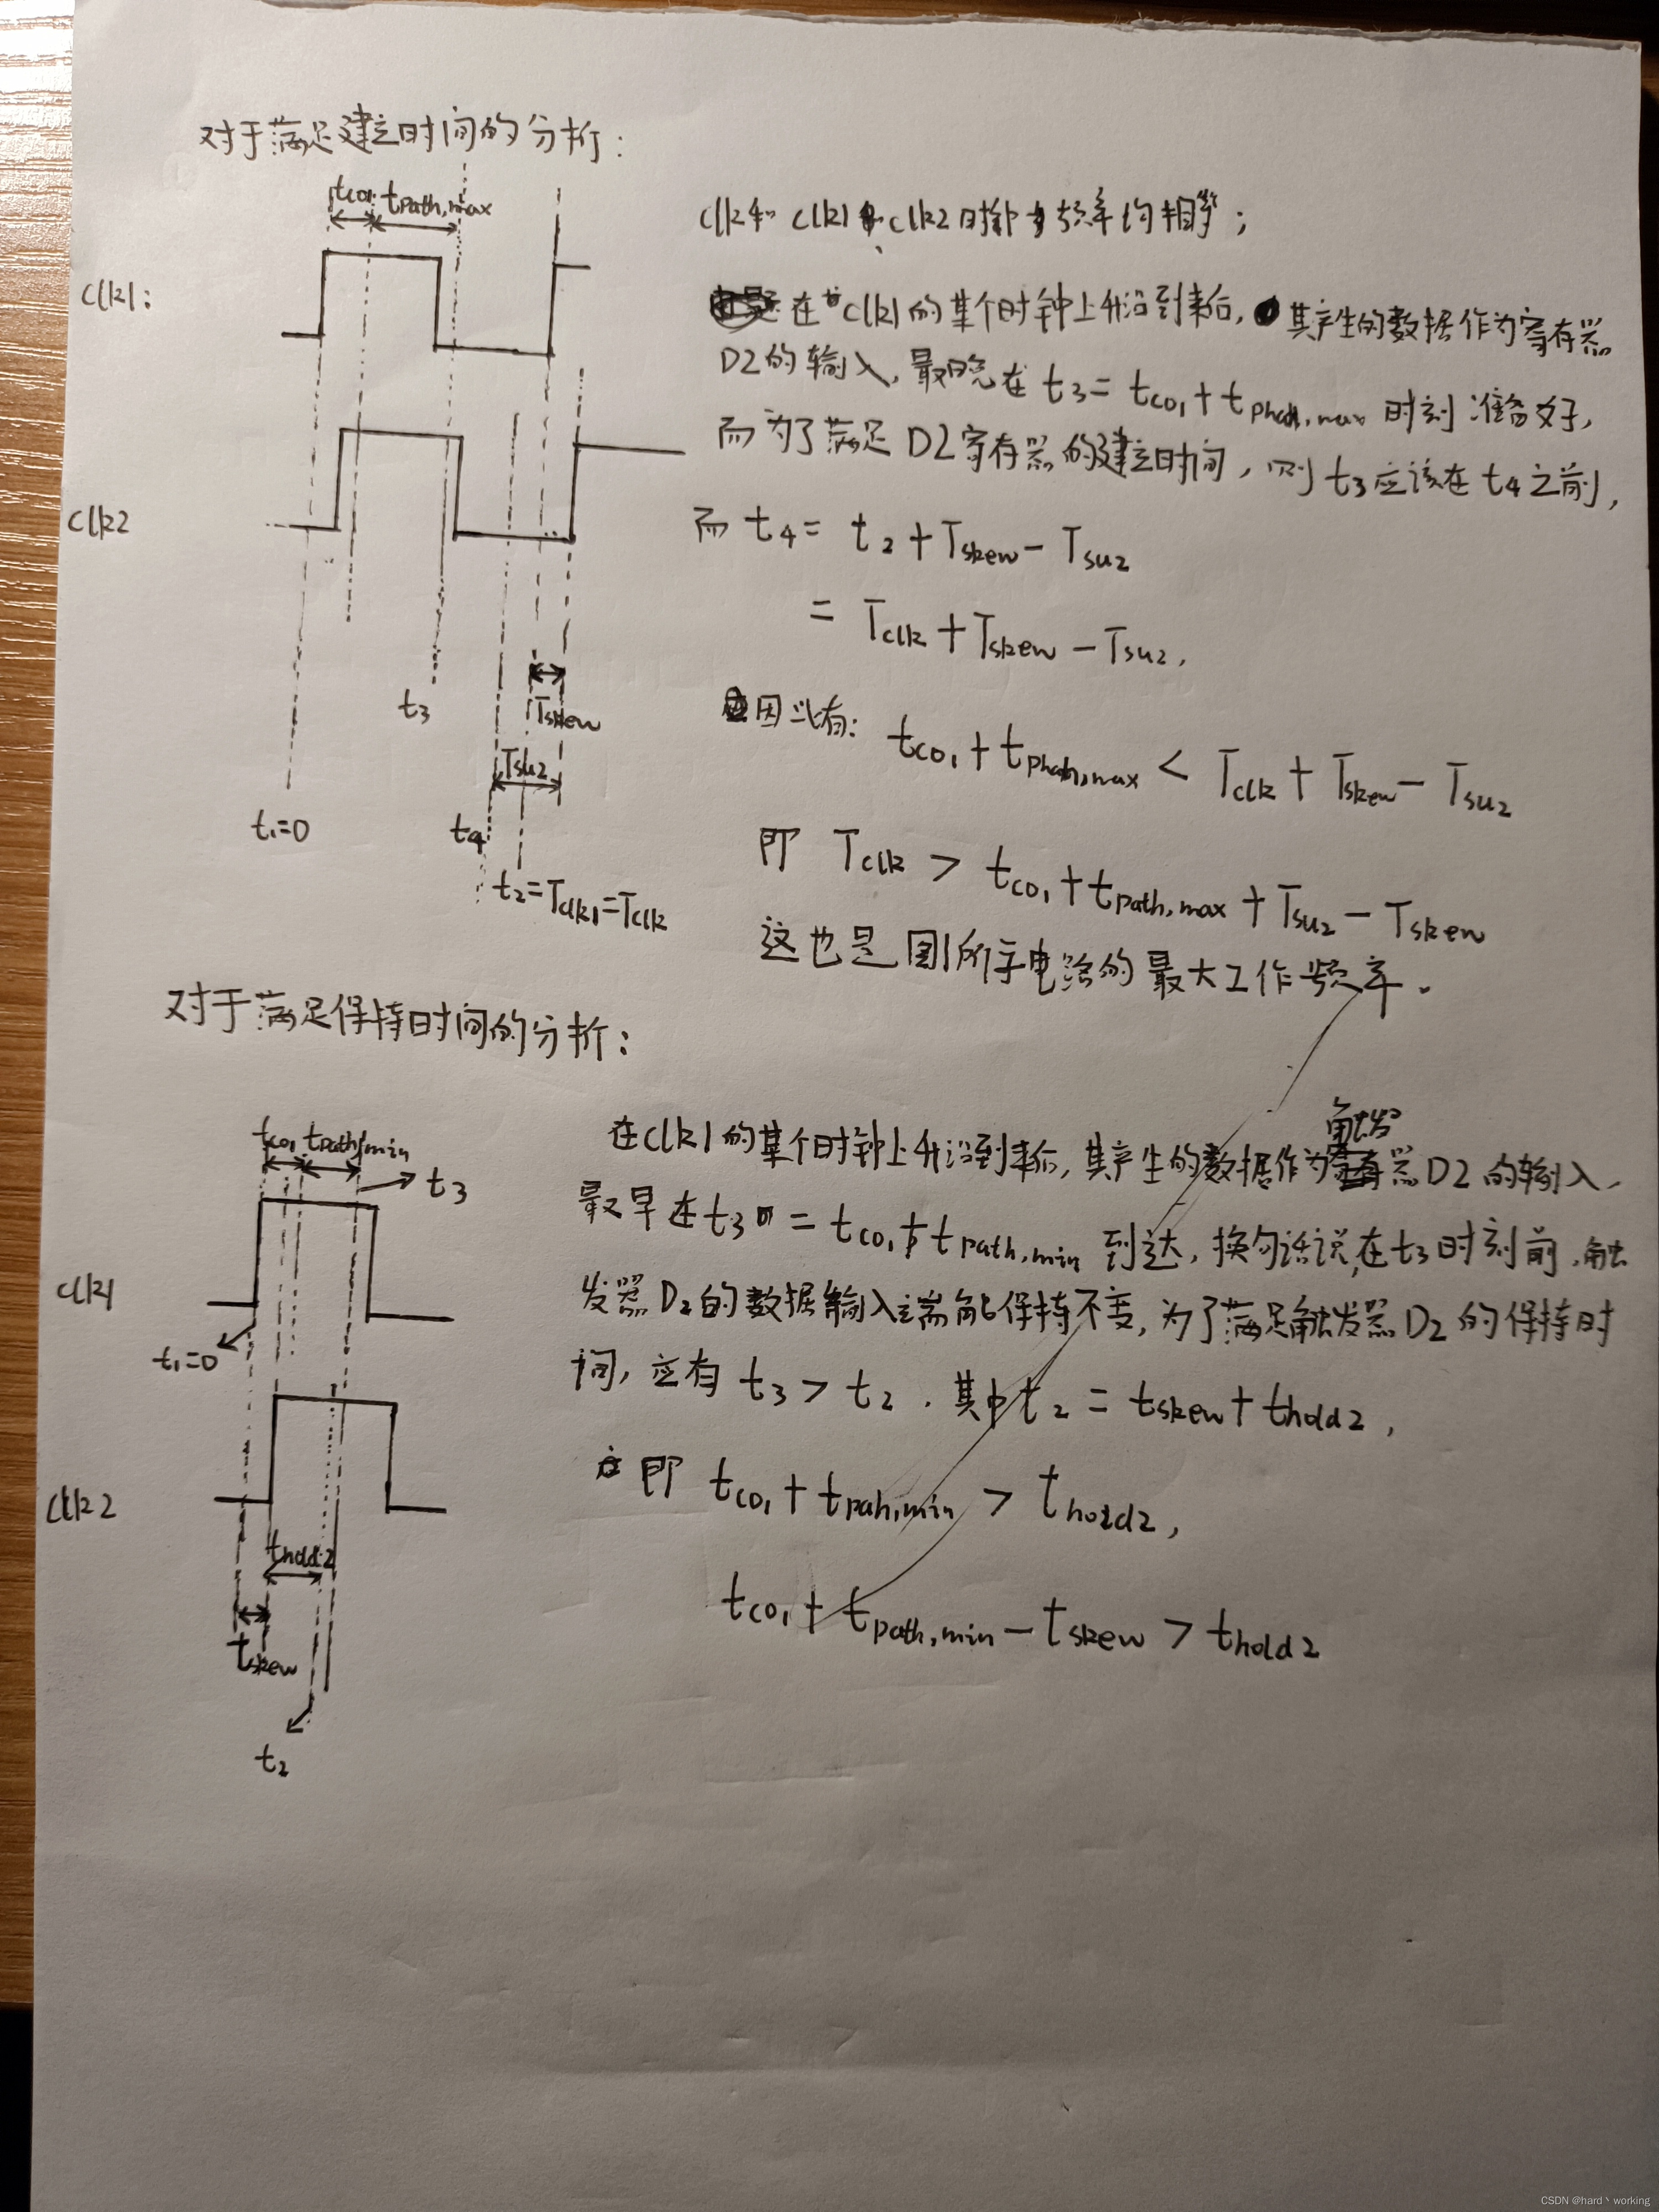 对于满足建立时间的分析:
tco1 tpath,max
clk1:
clk2
t3
Tskew
Tsu2
t1=0
t4
t2=Tclk1=Tclk
clk1 clk2时钟频率均相等;
在clk1的某个时钟上升沿到来后,其产生的数据作为寄存器
D2的输入,最晚在t3=tco1+tphath,max时刻准备好,
而为了满足D2寄存器的建立时间,则t3应该在t4之前,
而t4=t2+Tskew-Tsu2
=Tclk+Tskew-Tsu2,
因此有:tco1+tphath,max<Tclk+Tskew-Tsu2
即Tclk>tco1+tpath,max+Tsu2-Tskew
这也是图1所示电路的最大工作频率.
对于满足保持时间的分析:
tco1 tpath,min
t3
clk1
t1=0
clk2
thold2
tskew
t2
在clk1的某个时钟上升沿到来后,其产生的数据作为触发器D2的输入,
最早在t3=tco1+tpath,min到达,换句话说,在t3时刻前,触
发器D2的数据输入端能保持不变,为了满足触发器D2的保持时
间,应有t3>t2.其中t2=tskew+thold2,
即tco1+tpah,min>thold2,
tco1+tpath,min-tskew>thold2
CSDN @hard丶working